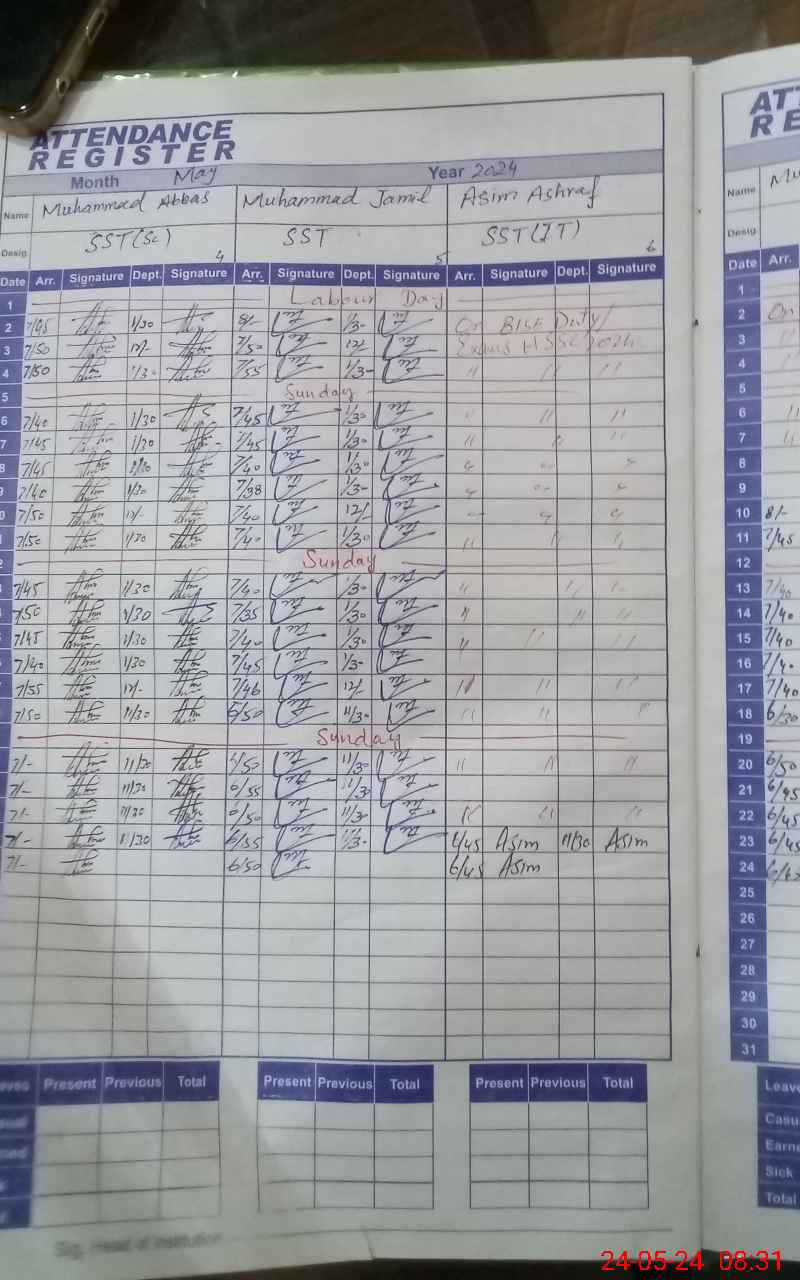 ATTENDANCE
REGISTER
Month May Year 2024
Name Muhammad Abbas Muhammad Jamil Asim Ashraf
Desig. SST(Sc) 4 SST 5 SST(IT) 6
Date Arr. Signature Dept. Signature Arr. Signature Dept. Signature Arr. Signature Dept. Signature
1 Labour Day
2 7/45 1/30 8/- 1/30 On BISE Duty/
3 7/50 12/- 7/50 12/- Exams HSSC 2024
4 7/50 1/30 7/55 1/30 " " "
5 Sunday
6 7/40 1/30 7/45 1/30 " " "
7 7/45 1/30 7/45 1/30 " " "
8 7/45 1/30 7/40 1/30 " " "
9 7/40 1/30 7/38 1/30 " " "
0 7/50 12/- 7/40 12/- " " "
1 7/50 1/30 7/40 1/30 " " "
2 Sunday
7/45 1/30 7/40 1/30 " " "
7/50 1/30 7/35 1/30 " " "
7/45 1/30 7/40 1/30 " " "
7/40 1/30 7/45 1/30
7/35 12/- 7/46 12/- " " "
7/50 11/30 6/50 11/30 " " "
Sunday
7/- 11/30 6/50 11/30 " " "
7/- 11/30 6/55 11/30
7/- 11/30 6/50 11/30 " " "
7/- 11/30 6/55 11/30 6/45 Asim 11/30 Asim
7/- 6/50 6/45 Asim
Present Previous Total Present Previous Total Present Previous Total
Sig. Head of Institution
AT
RE
Name Mu
Desig.
Date Arr.
1
2 On
3
4
5
6 "
7 "
8
9
10 8/-
11 7/45
12
13 7/40
14 7/40
15 7/40
16 7/40
17 7/40
18 6/30
19
20 6/50
21 6/45
22 6/45
23 6/45
24 6/45
25
26
27
28
29
30
31
Leave
Casu
Earne
Sick
Total
24-05-24 08:31